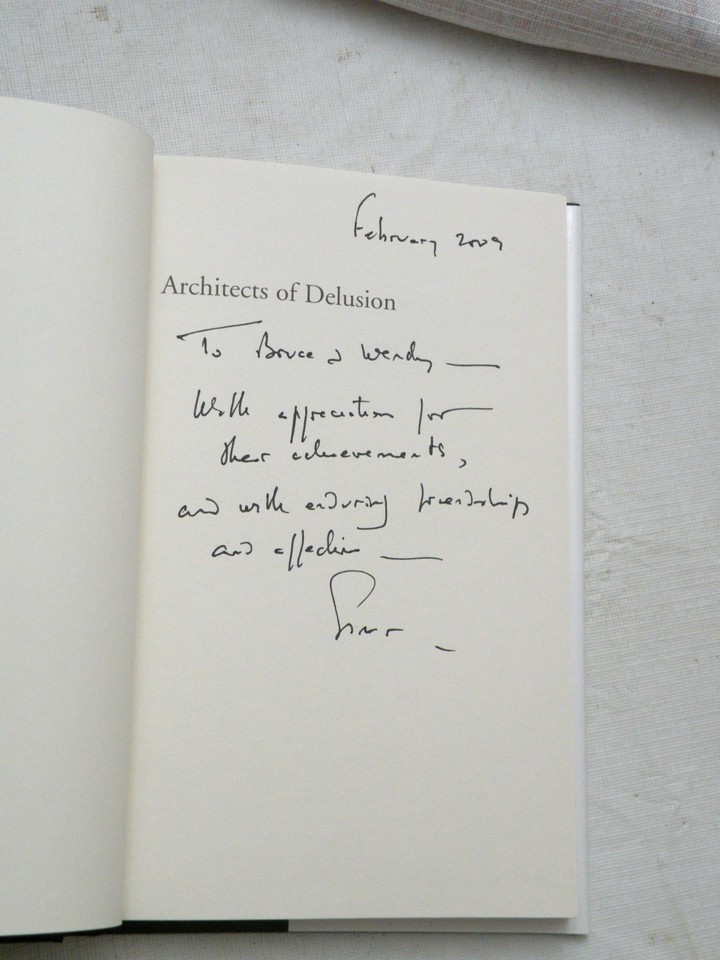 February 2009
Architects of Delusion
To Bruce & Wendy —
With appreciation for
their achievements,
and with enduring friendship
and affection —